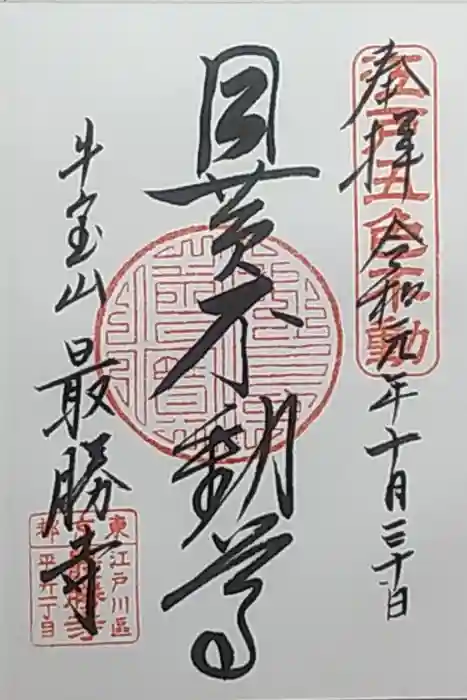 奉拝 令和元年十月三十日
江戸五色不動
目黄不動尊
牛宝山 最勝寺
東江戸川區
平井一丁目